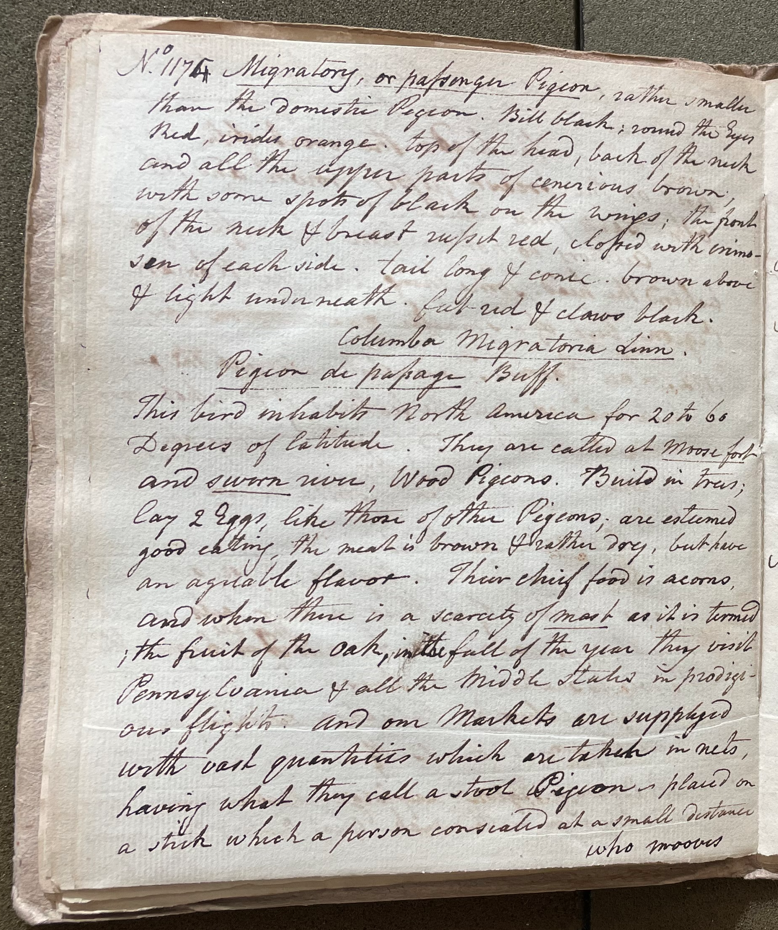 No. 1175 Migratory, or passenger Pigeon, rather smaller
than the domestic Pigeon. Bill black; round the Eyes
Red, irides orange. top of the head, back of the neck
and all the upper parts of cenerious brown,
with some spots of black on the wings; the front
of the neck & breast russit red, clossed with crimo-
sen of each side. tail long & conic. brown above
& light underneath. feet red & claws black.
Columba Migratoria Linn.
Pigeon de passage Buff.
This bird inhabits North America for 20 to 60
Degrees of latitude. They are called at Moose fort
and severn river, Wood Pigeons. Build in trees;
lay 2 Eggs, like those of other Pigeons; are esteemed
good eating, the meat is brown & rather dry, but have
an agreable flavor. Their chief food is acorns,
and when there is a scarcety of mast as it is termed
; the fruit of the oak, in the fall of the year they visit
Pennsylvania & all the Middle States in prodigi-
ous flights. And our Markets are supplyed
with vast quantities which are taken in nets,
having what they call a stool Pigeon placed on
a stick which a person conseated at a small distance
who mooves